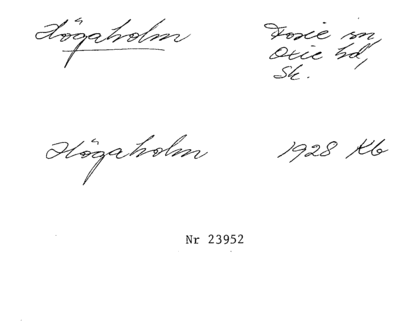 Högaholm Fosie sn,
Oxie hd,
Sk.
Högaholm 1928 Kb
Nr 23952